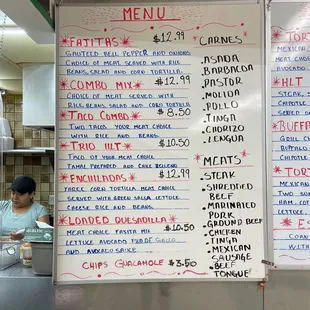 MENU
FAJITAS $12.99
SAUTEED BELL PEPPER AND ONIONS
CHOICE OF MEAT SERVED WITH RICE
BEANS, SALAD AND CORN TORTILLA.
COMBO MIX $12.99
CHOICE OF MEAT SERVED WITH
RICE BEANS, SALAD AND CORN TORTILLA
TACO COMBO $8.50
TWO TACOS YOUR MEAT CHOICE
WITH RICE AND BEANS.
TRIO HLT $10.50
TACO OF YOUR MEAT CHOICE
TAMAL PREPARED AND CHILE RELLENO
ENCHILADAS $12.99
THREE CORN TORTILLA MEAT CHOICE
SERVED WITH GREEN SALSA LETTUCE
CHEESE RICE AND BEANS
LOADED QUESADILLA $10.50
MEAT CHOICE FAJITA MIX
LETTUCE AVOCADO
AND AVOCADO SAUCE
CHIPS GUACAMOLE $3.50
CARNES
.ASADA
.BARBACOA
.PASTOR
.MOLIDA
.POLLO
.TINGA
.CHORIZO
.LENGUA
MEATS
.STEAK
.SHREDDED
BEEF
.MARINATED
PORK
.GROUND BEEF
.CHICKEN
.TINGA
.MEXICAN
SAUSAGE
.BEEF
TONGUE
TOR
MEXICAN
AVOCADO
HLT
STEAK
CHIPOTLE
SERVED
BUFFA
GRILL
BUFFALO
CHIPOTLE
TOR
MEXICAN
TWO
HAM, COT
LET